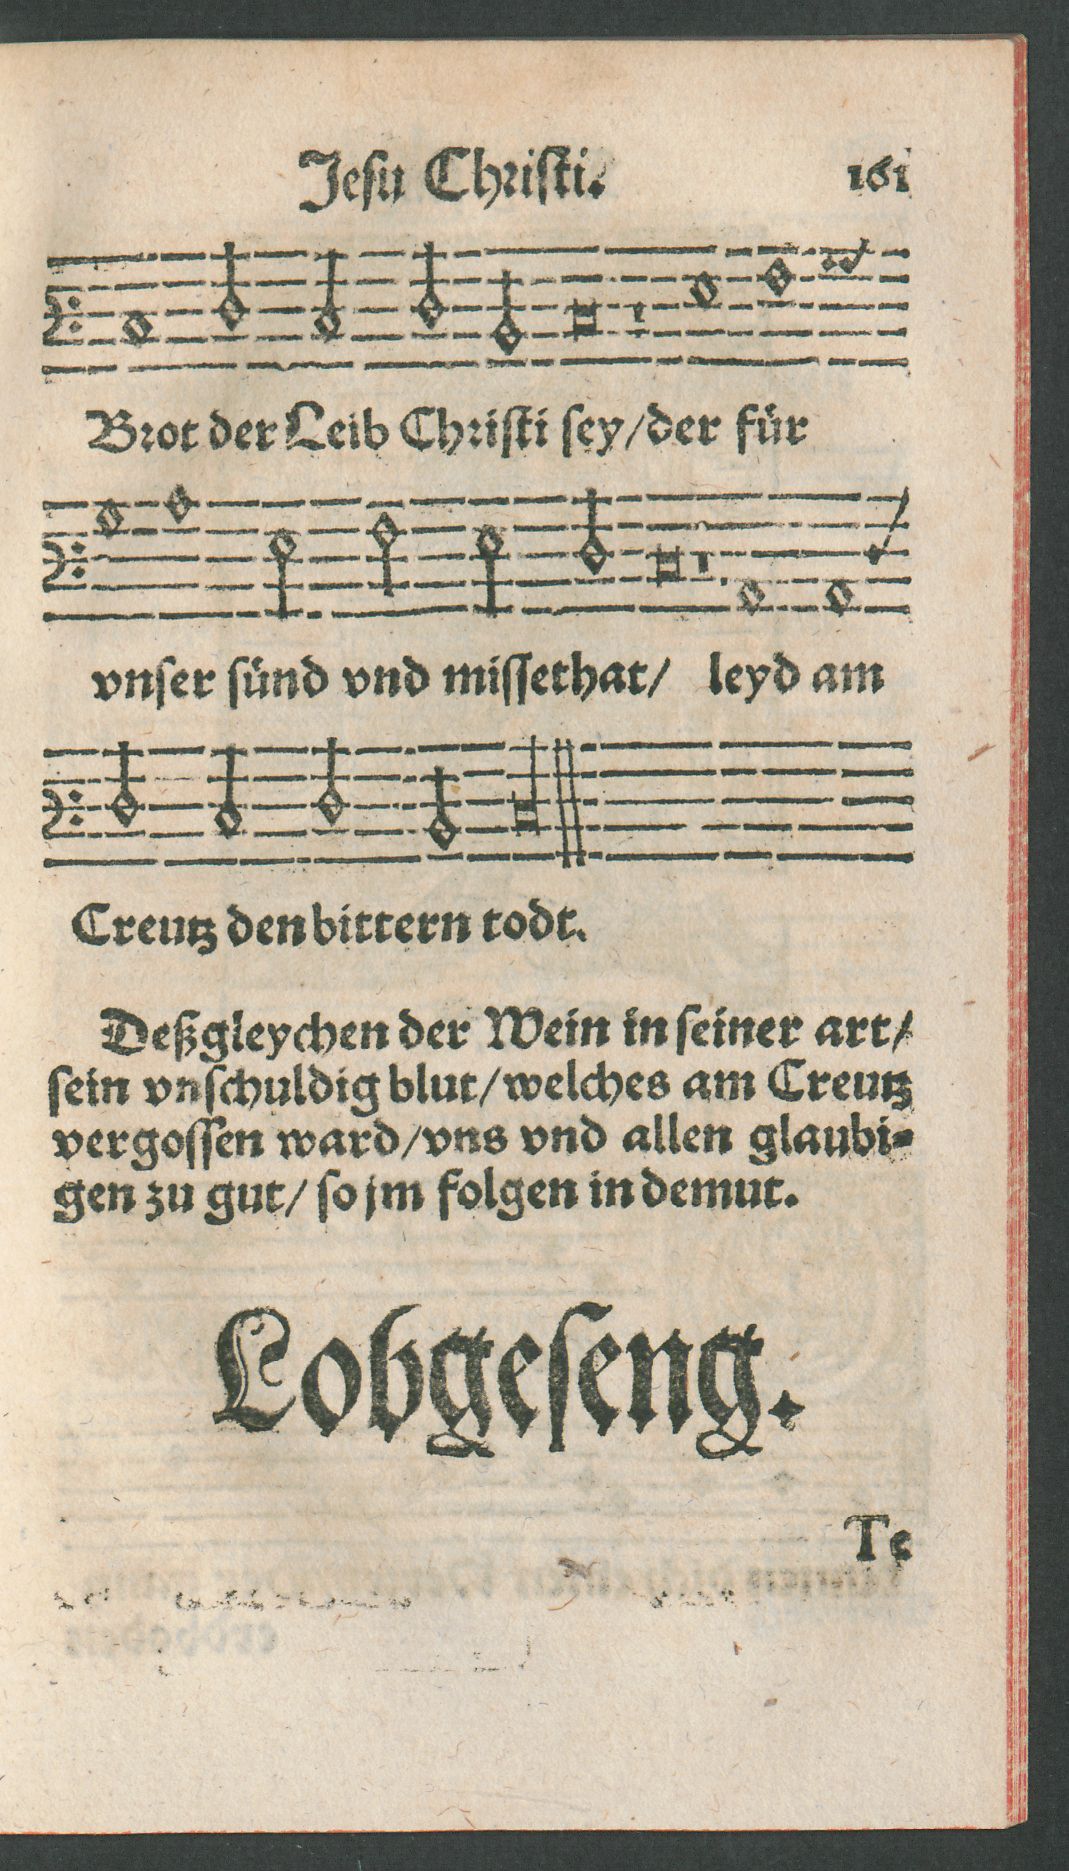 Jesu Christi. 161
Brot der Leib Christi sey/der für
vnser sünd vnd missethat/ leyd am
Creutz den bittern todt.
Deßgleychen der Wein in seiner art/
sein vnschuldig blut/welches am Creutz
vergossen ward/vns vnd allen glaubi=
gen zu gut/ so jm folgen in demut.
Lobgeseng.
Te